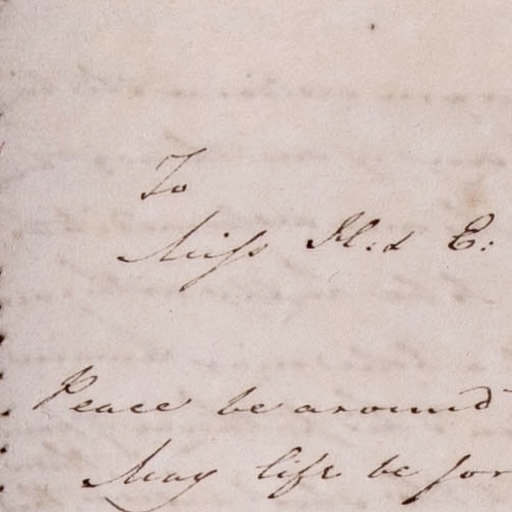 To
Miss H:d E:
Peace be around
May life be for